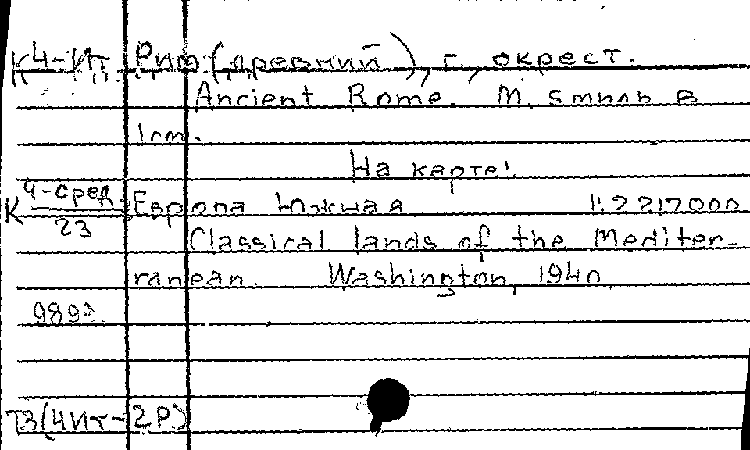 К4-Ит Рим (древний), г., окрест.
Ancient Rome. М. 5миль в
1см.
На карте:
К 4-сред/23 Европа Южная 1:2217000
Classical lands of the Mediter-
ranean. Washington, 1940.
989
ТЗ(4Ит-2Р)